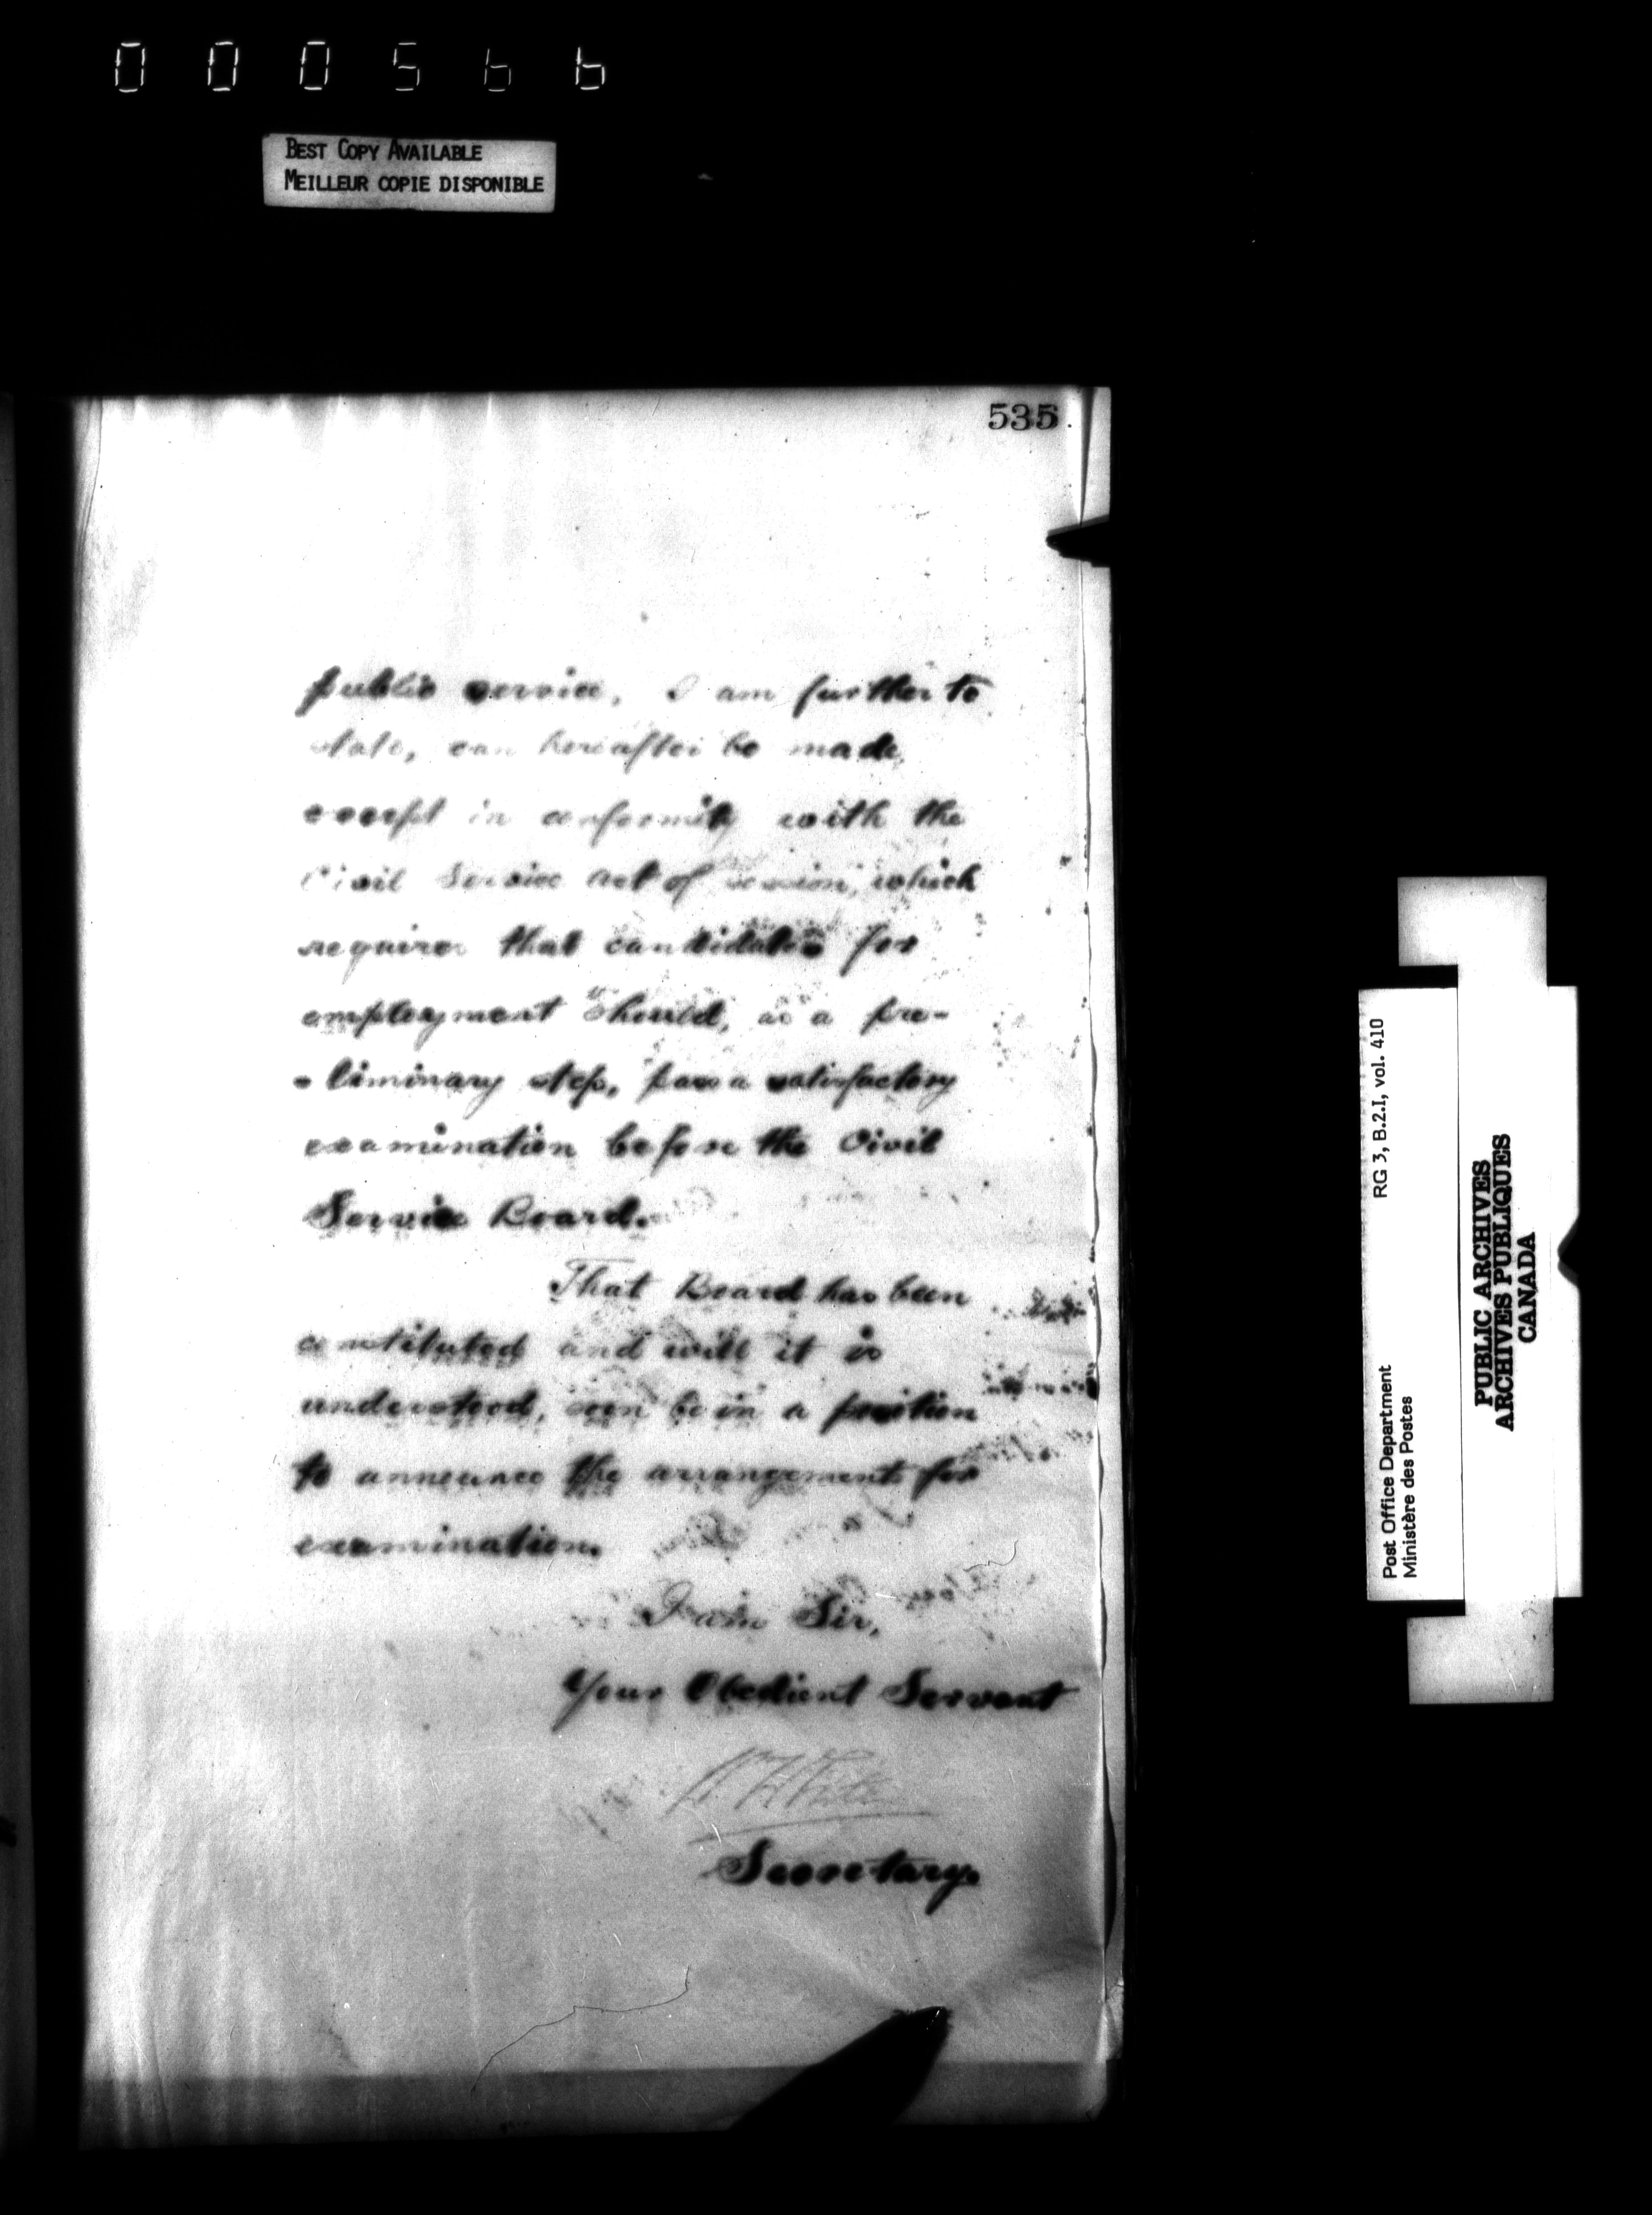 000566
BEST COPY AVAILABLE
MEILLEUR COPIE DISPONIBLE
535
public service, I am further to
state, can hereafter be made,
except in conformity with the
Civil Service Act of session, which
requires that candidates for
employment should, as a pre-
-liminary step, pass a satisfactory
examination before the Civil
Service Board.
That Board has been
constituted and will it is
understood, soon be in a position
to announce the arrangements for
examination.
I am Sir,
Your Obedient Servant
Secretary.
RG 3, B.2.I, vol. 410
Post Office Department
Ministère des Postes
PUBLIC ARCHIVES
ARCHIVES PUBLIQUES
CANADA